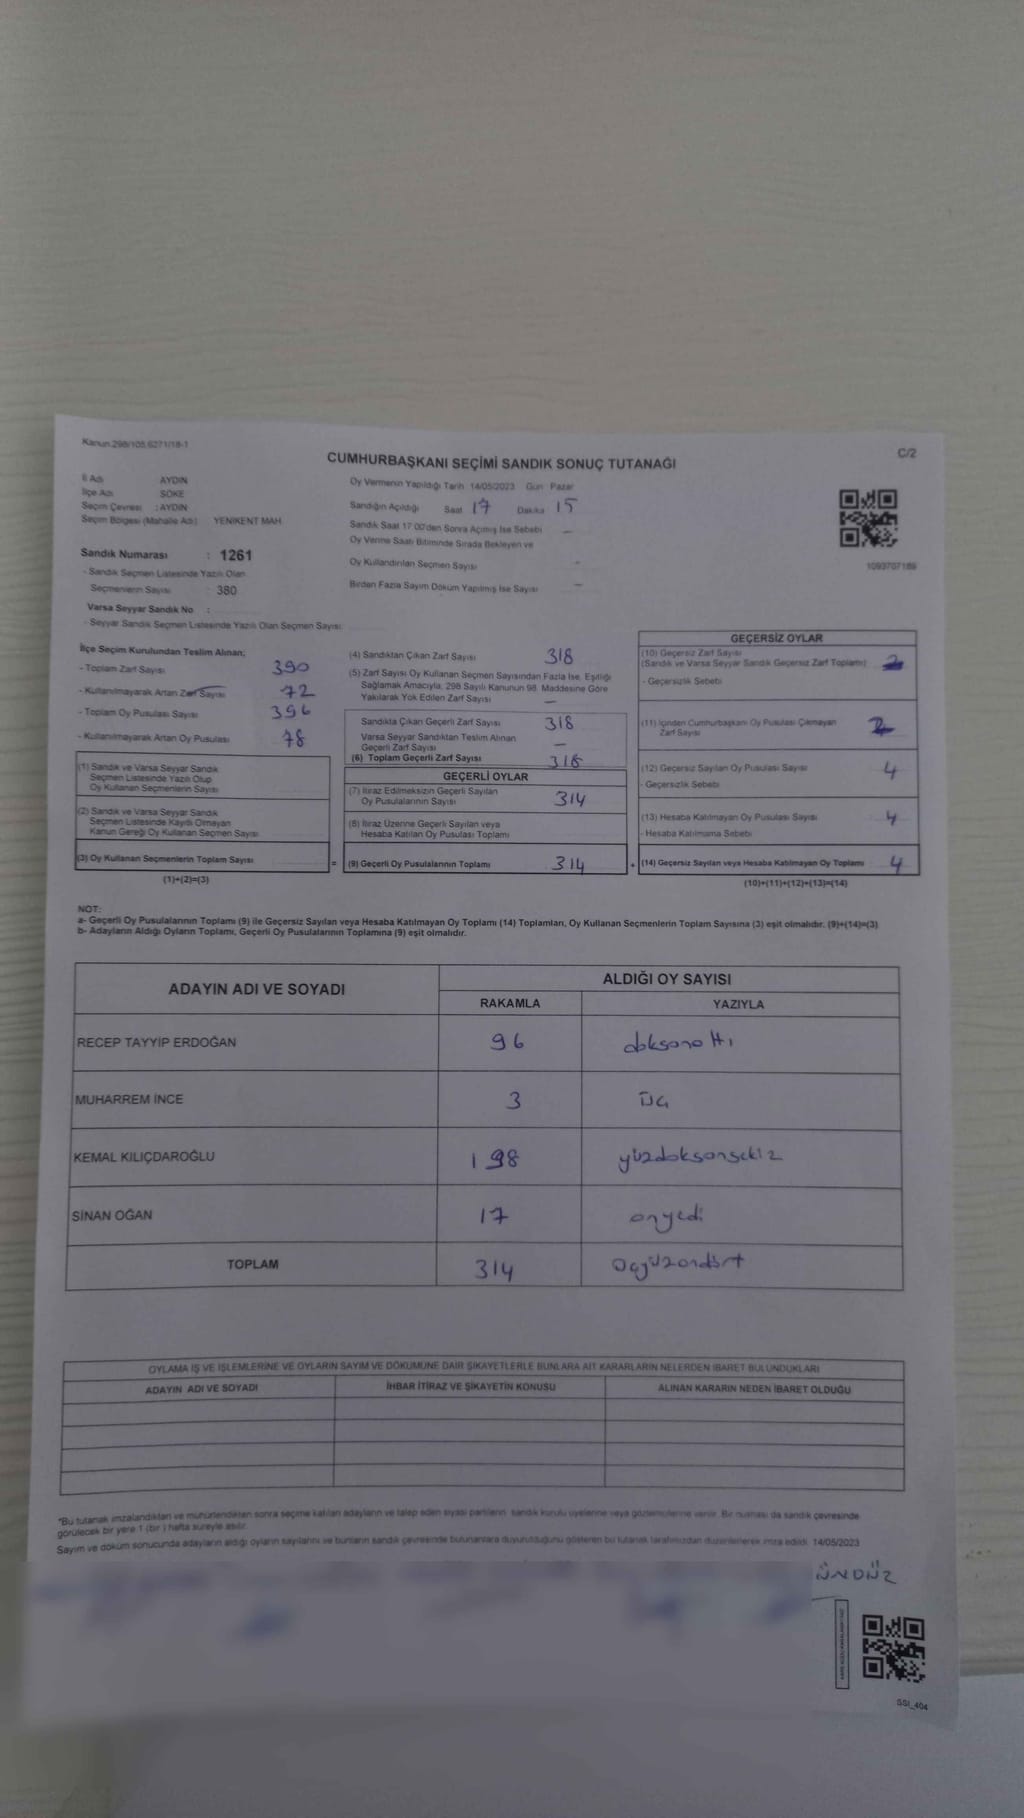 Kanun.298/105,6271/18-1
C/2
CUMHURBAŞKANI SEÇİMİ SANDIK SONUÇ TUTANAĞI
İl Adı AYDIN
İlçe Adı SÖKE
Seçim Çevresi : AYDIN
Seçim Bölgesi (Mahalle Adı) YENİKENT MAH
Sandık Numarası : 1261
- Sandık Seçmen Listesinde Yazılı Olan
Seçmenlerin Sayısı 380
Varsa Seyyar Sandık No :
- Seyyar Sandık Seçmen Listesinde Yazılı Olan Seçmen Sayısı
Oy Vermenin Yapıldığı Tarih 14/05/2023 Gün Pazar
Sandığın Açıldığı Saat 17 Dakika 15
Sandık Saat 17.00'den Sonra Açılmış İse Sebebi —
Oy Verme Saati Bitiminde Sırada Bekleyen ve
Oy Kullandırılan Seçmen Sayısı -
Birden Fazla Sayım Döküm Yapılmış İse Sayısı —
1093707189
İlçe Seçim Kurulundan Teslim Alınan;
- Toplam Zarf Sayısı 390
- Kullanılmayarak Artan Zarf Sayısı 72
- Toplam Oy Pusulası Sayısı 396
- Kullanılmayarak Artan Oy Pusulası 78
(1) Sandık ve Varsa Seyyar Sandık
Seçmen Listesinde Yazılı Olup
Oy Kullanan Seçmenlerin Sayısı
(2) Sandık ve Varsa Seyyar Sandık
Seçmen Listesinde Kayıtlı Olmayan
Kanun Gereği Oy Kullanan Seçmen Sayısı
(3) Oy Kullanan Seçmenlerin Toplam Sayısı
(1)+(2)=(3)
(4) Sandıktan Çıkan Zarf Sayısı 318
(5) Zarf Sayısı Oy Kullanan Seçmen Sayısından Fazla İse, Eşitliği
Sağlamak Amacıyla, 298 Sayılı Kanunun 98. Maddesine Göre
Yakılarak Yok Edilen Zarf Sayısı —
Sandıkta Çıkan Geçerli Zarf Sayısı 318
Varsa Seyyar Sandıktan Teslim Alınan
Geçerli Zarf Sayısı —
(6) Toplam Geçerli Zarf Sayısı 318
GEÇERLİ OYLAR
(7) İtiraz Edilmeksizin Geçerli Sayılan
Oy Pusulalarının Sayısı 314
(8) İtiraz Üzerine Geçerli Sayılan veya
Hesaba Katılan Oy Pusulası Toplamı
= (9) Geçerli Oy Pusulalarının Toplamı 314
GEÇERSİZ OYLAR
(10) Geçersiz Zarf Sayısı
(Sandık ve Varsa Seyyar Sandık Geçersiz Zarf Toplamı)
- Geçersizlik Sebebi
(11) İçinden Cumhurbaşkanı Oy Pusulası Çıkmayan
Zarf Sayısı
(12) Geçersiz Sayılan Oy Pusulası Sayısı 4
- Geçersizlik Sebebi
(13) Hesaba Katılmayan Oy Pusulası Sayısı 4
- Hesaba Katılmama Sebebi
+ (14) Geçersiz Sayılan veya Hesaba Katılmayan Oy Toplamı 4
(10)+(11)+(12)+(13)=(14)
NOT:
a- Geçerli Oy Pusulalarının Toplamı (9) ile Geçersiz Sayılan veya Hesaba Katılmayan Oy Toplamı (14) Toplamları, Oy Kullanan Seçmenlerin Toplam Sayısına (3) eşit olmalıdır. (9)+(14)=(3)
b- Adayların Aldığı Oyların Toplamı, Geçerli Oy Pusulalarının Toplamına (9) eşit olmalıdır.
ADAYIN ADI VE SOYADI ALDIĞI OY SAYISI
RAKAMLA YAZIYLA
RECEP TAYYİP ERDOĞAN 96 doksanaltı
MUHARREM İNCE 3 üç
KEMAL KILIÇDAROĞLU 198 yüzdoksansekiz
SİNAN OĞAN 17 onyedi
TOPLAM 314 üçyüzondört
OYLAMA İŞ VE İŞLEMLERİNE VE OYLARIN SAYIM VE DÖKÜMÜNE DAİR ŞİKAYETLERLE BUNLARA AİT KARARLARIN NELERDEN İBARET BULUNDUKLARI
ADAYIN ADI VE SOYADI İHBAR İTİRAZ VE ŞİKAYETİN KONUSU ALINAN KARARIN NEDEN İBARET OLDUĞU
*Bu tutanak imzalandıktan ve mühürlendikten sonra seçime katılan adayların ve talep eden siyasi partilerin sandık kurulu üyelerine veya gözlemcilerine verilir. Bir nüshası da sandık çevresinde
görülecek bir yere 1 (bir) hafta süreyle asılır.
Sayım ve döküm sonucunda adayların aldığı oyların sayılarını ve bunların sandık çevresinde bulunanlara duyurulduğunu gösteren bu tutanak tarafımızdan düzenlenerek imza edildi. 14/05/2023
ÜNDÜZ
SSI_404